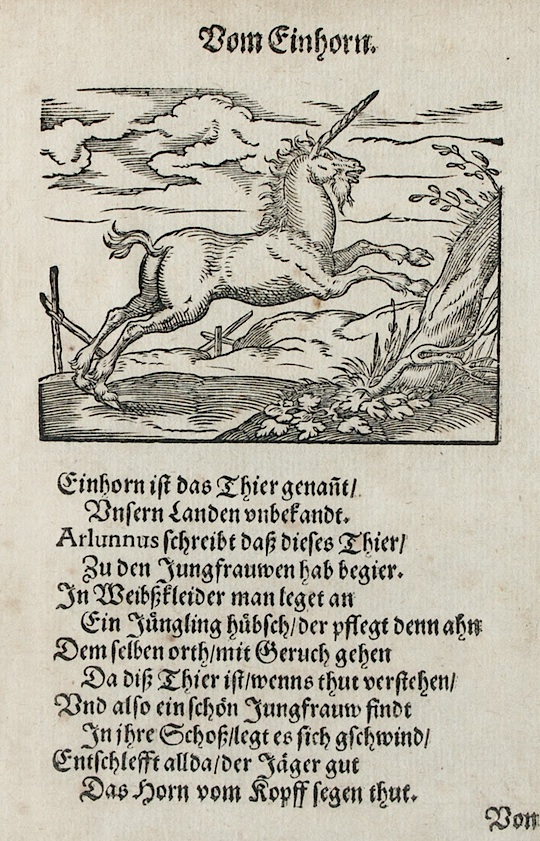 Vom Einhorn.
Einhorn ist das Thier genañt/
Vnsern Landen vnbekandt.
Arlunnus schreibt daß dieses Thier/
Zu den Jungfrauwen hab begier.
In Weibßkleider man leget an
Ein Jüngling hübsch/der pflegt denn ahn
Dem selben orth/mit Geruch gehen
Da diß Thier ist/wenns thut verstehen/
Vnd also ein schön Jungfrauw findt
In jhre Schoß/legt es sich gschwind/
Entschlefft allda/der Jäger gut
Das Horn vom Kopff segen thut.
Von